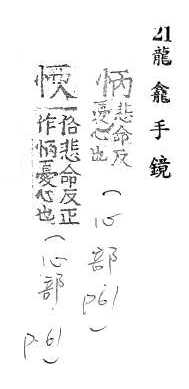 21 龍龕手鏡
怲 悲命反
憂心也
(心部 p.61)
俗悲命反正
作怲憂心也
(心部 p.61)